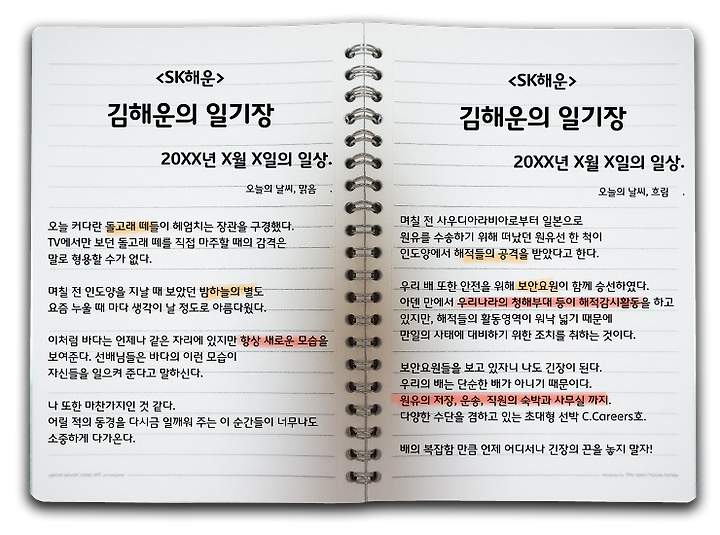 <SK해운>
김해운의 일기장
20XX년 X월 X일의 일상.
오늘의 날씨, 맑음 .
오늘 커다란 돌고래 떼들이 헤엄치는 장관을 구경했다.
TV에서만 보던 돌고래 떼를 직접 마주할 때의 감격은
말로 형용할 수가 없다.
며칠 전 인도양을 지날 때 보았던 밤하늘의 별도
요즘 누울 때 마다 생각이 날 정도로 아름다웠다.
이처럼 바다는 언제나 같은 자리에 있지만 항상 새로운 모습을
보여준다. 선배님들은 바다의 이런 모습이
자신들을 일으켜 준다고 말하신다.
나 또한 마찬가지인 것 같다.
어릴 적의 동경을 다시금 일깨워 주는 이 순간들이 너무나도
소중하게 다가온다.
<SK해운>
김해운의 일기장
20XX년 X월 X일의 일상.
오늘의 날씨, 흐림 .
며칠 전 사우디아라비아로부터 일본으로
원유를 수송하기 위해 떠났던 원유선 한 척이
인도양에서 해적들의 공격을 받았다고 한다.
우리 배 또한 안전을 위해 보안요원이 함께 승선하였다.
아덴 만에서 우리나라의 청해부대 등이 해적감시활동을 하고
있지만, 해적들의 활동영역이 워낙 넓기 때문에
만일의 사태에 대비하기 위한 조치를 취하는 것이다.
보안요원들을 보고 있자니 나도 긴장이 된다.
우리의 배는 단순한 배가 아니기 때문이다.
원유의 저장, 운송, 직원의 숙박과 사무실 까지.
다양한 수단을 겸하고 있는 초대형 선박 C.Careers호.
배의 복잡함 만큼 언제 어디서나 긴장의 끈을 놓지 말자!